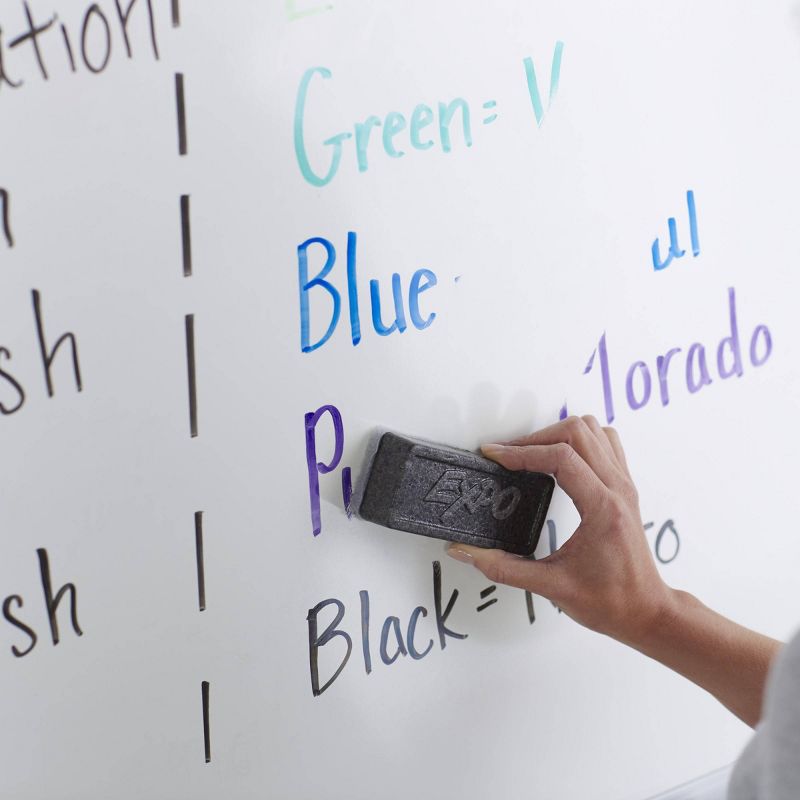 ation
Green = V
Blue ul
sh
P lorado
EXPO
sh
Black = N to